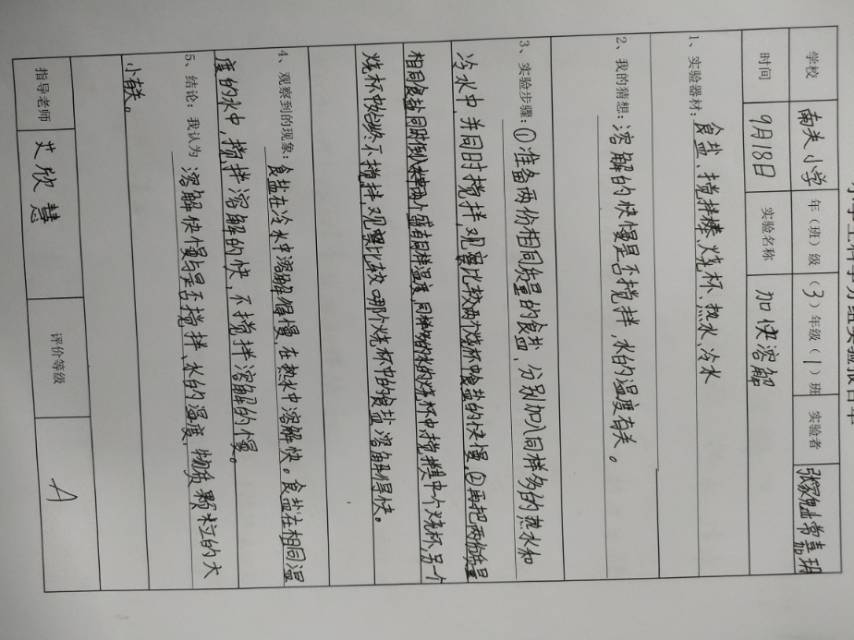 小学生科学分组实验报告单
学校 南关小学 年（班）级 （3）年级（1）班 实验者
时间 9月18日 实验名称 加快溶解
1、实验器材：食盐、搅拌棒、烧杯、热水、冷水
2、我的猜想：溶解的快慢是否搅拌，水的温度有关。
3、实验步骤：①准备两份相同质量的食盐，分别加入同样多的热水和
冷水中，并同时搅拌，观察比较两个烧杯中食盐的快慢。②再把两份质量
相同食盐同时倒入两个盛有同样温度，同样多的水的烧杯中，搅拌其中一个烧杯，另一个
烧杯中始终不搅拌，观察比较哪个烧杯中的食盐溶解得快。
4、观察到的现象：食盐在冷水中溶解慢，在热水中溶解快。食盐在相同温
度的水中，搅拌溶解的快，不搅拌溶解的慢。
5、结论：我认为 溶解快慢与是否搅拌、水的温度、物质颗粒的大
小有关。
指导老师 艾欣慧 评价等级 A